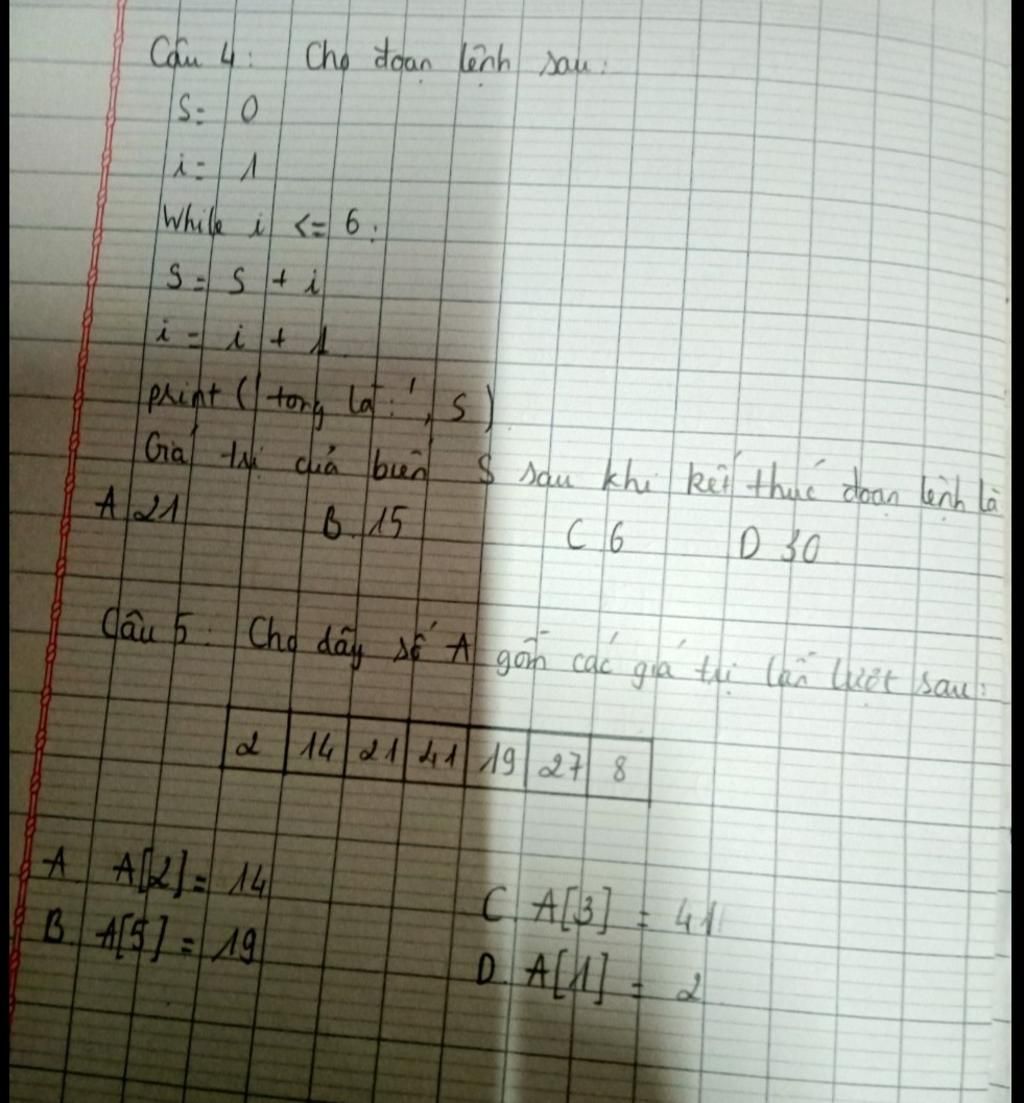 Câu 4: Cho đoạn lệnh sau:
S= 0
i= 1
While i <= 6:
S= S + i
i = i + 1
print ('tong la:', S)
Giá trị của biến S sau khi kết thúc đoạn lệnh là
A 21 B. 15 C 6 D 30
Câu 5: Cho dãy số A gồm các giá trị lần lượt sau:
2 14 21 41 19 27 8
A A[2]= 14 C A[3] = 41
B A[5] = 19 D. A[1] = 2